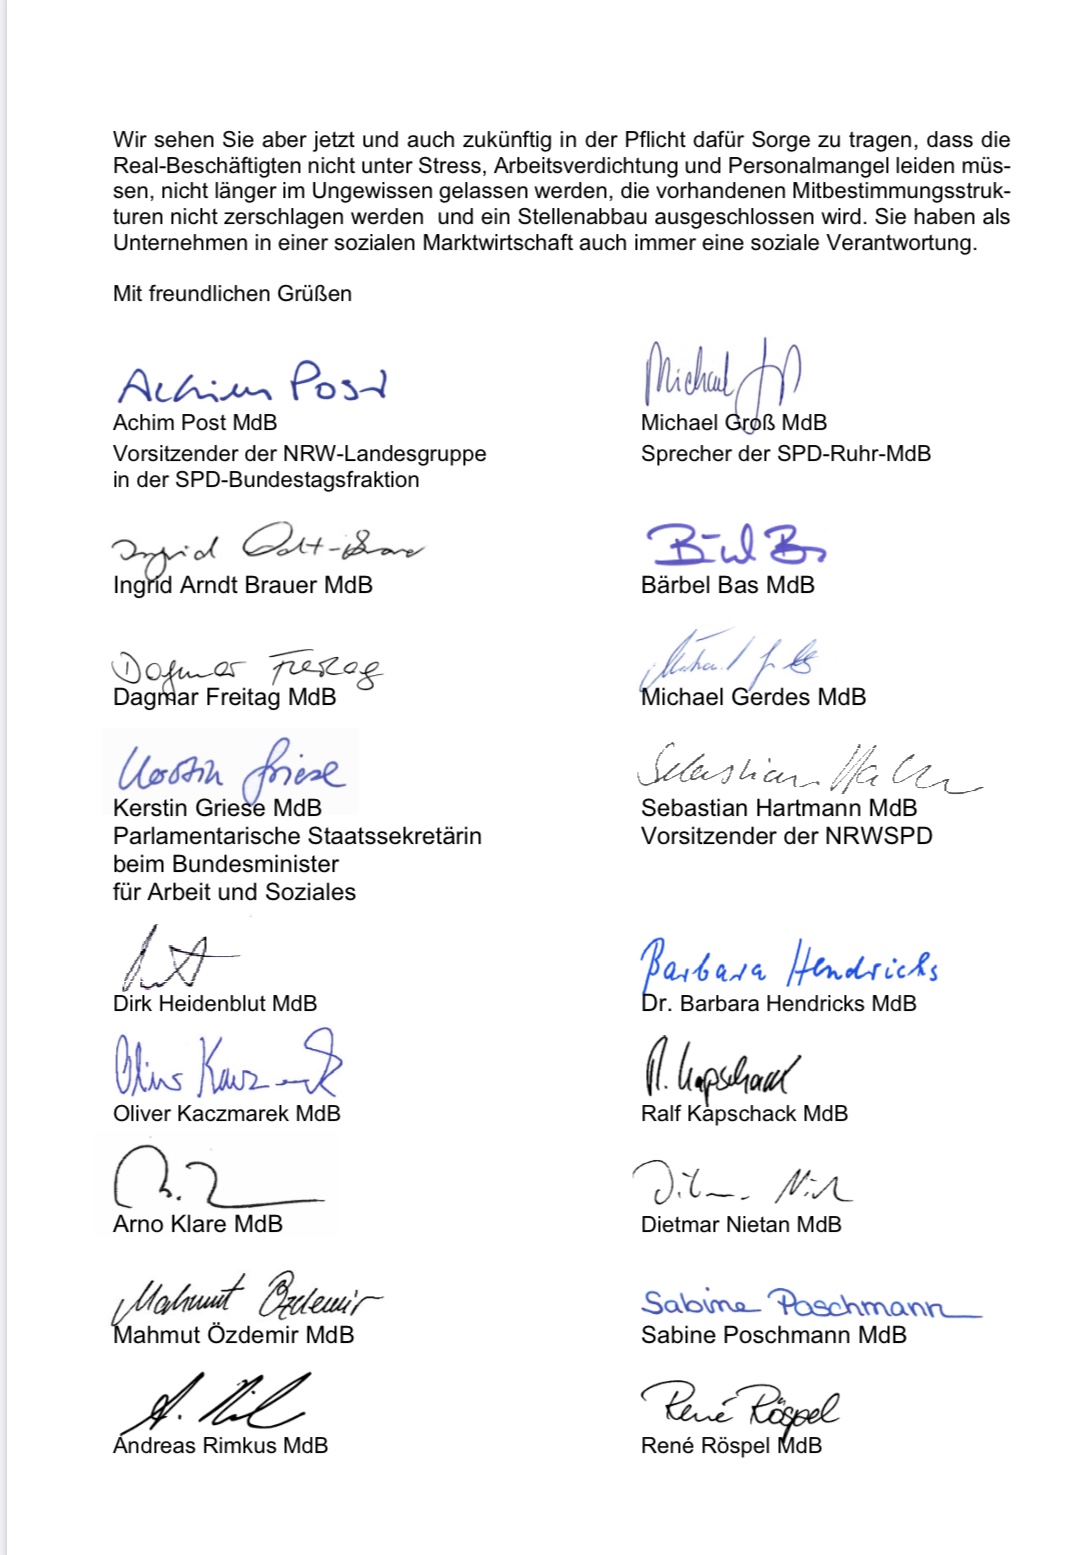 Wir sehen Sie aber jetzt und auch zukünftig in der Pflicht dafür Sorge zu tragen, dass die
Real-Beschäftigten nicht unter Stress, Arbeitsverdichtung und Personalmangel leiden müs-
sen, nicht länger im Ungewissen gelassen werden, die vorhandenen Mitbestimmungsstruk-
turen nicht zerschlagen werden  und ein Stellenabbau ausgeschlossen wird. Sie haben als
Unternehmen in einer sozialen Marktwirtschaft auch immer eine soziale Verantwortung.
Mit freundlichen Grüßen
Achim Post
Michael
Achim Post MdB
Michael Groß MdB
Vorsitzender der NRW-Landesgruppe
Sprecher der SPD-Ruhr-MdB
in der SPD-Bundestagsfraktion
Ingrid
Ingrid Arndt Brauer MdB
Bärbel Bas MdB
Dagmar Freitag
Dagmar Freitag MdB
Michael Gerdes MdB
Kerstin Griese
Sebastian
Kerstin Griese MdB
Sebastian Hartmann MdB
Parlamentarische Staatssekretärin
Vorsitzender der NRWSPD
beim Bundesminister
für Arbeit und Soziales
Barbara Hendricks
Dirk Heidenblut MdB
Dr. Barbara Hendricks MdB
R. Kapschack
Oliver Kaczmarek MdB
Ralf Kapschack MdB
Arno Klare MdB
Dietmar Nietan MdB
Mahmut Özdemir
Sabine Poschmann
Mahmut Özdemir MdB
Sabine Poschmann MdB
René Röspel
Andreas Rimkus MdB
René Röspel MdB